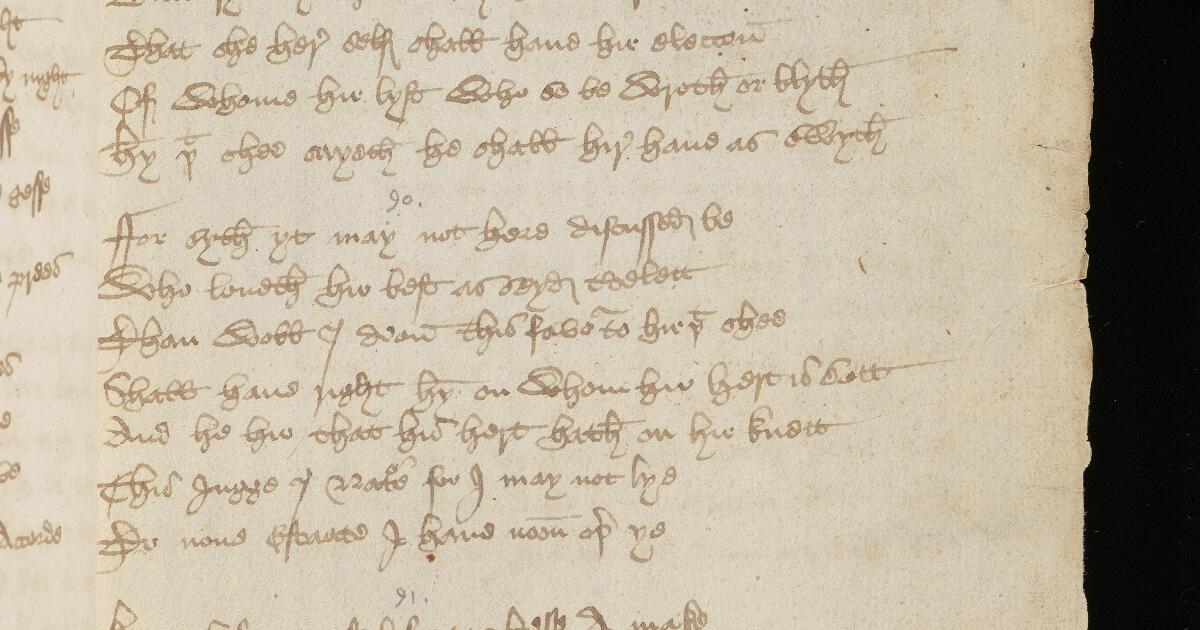 That she her self shall haue hir eleccoun
Of Whome hir lyst Who so be Wroth or blyth
hym þat shee cheseth he shall hir haue as swyth
90.
ffor syth yt may not here discussed be
Who loueth hir best as seyd
Than Woll I doun this fauour to hir þat shee
Shall haue right hym on Whom hir hert is sett
And he hir that his hert hath on hir knett
This Iugge I Nature for I may not lye
To none Estaate I haue noon oþer ye
91.
make
night
gesse
prees
Accorde